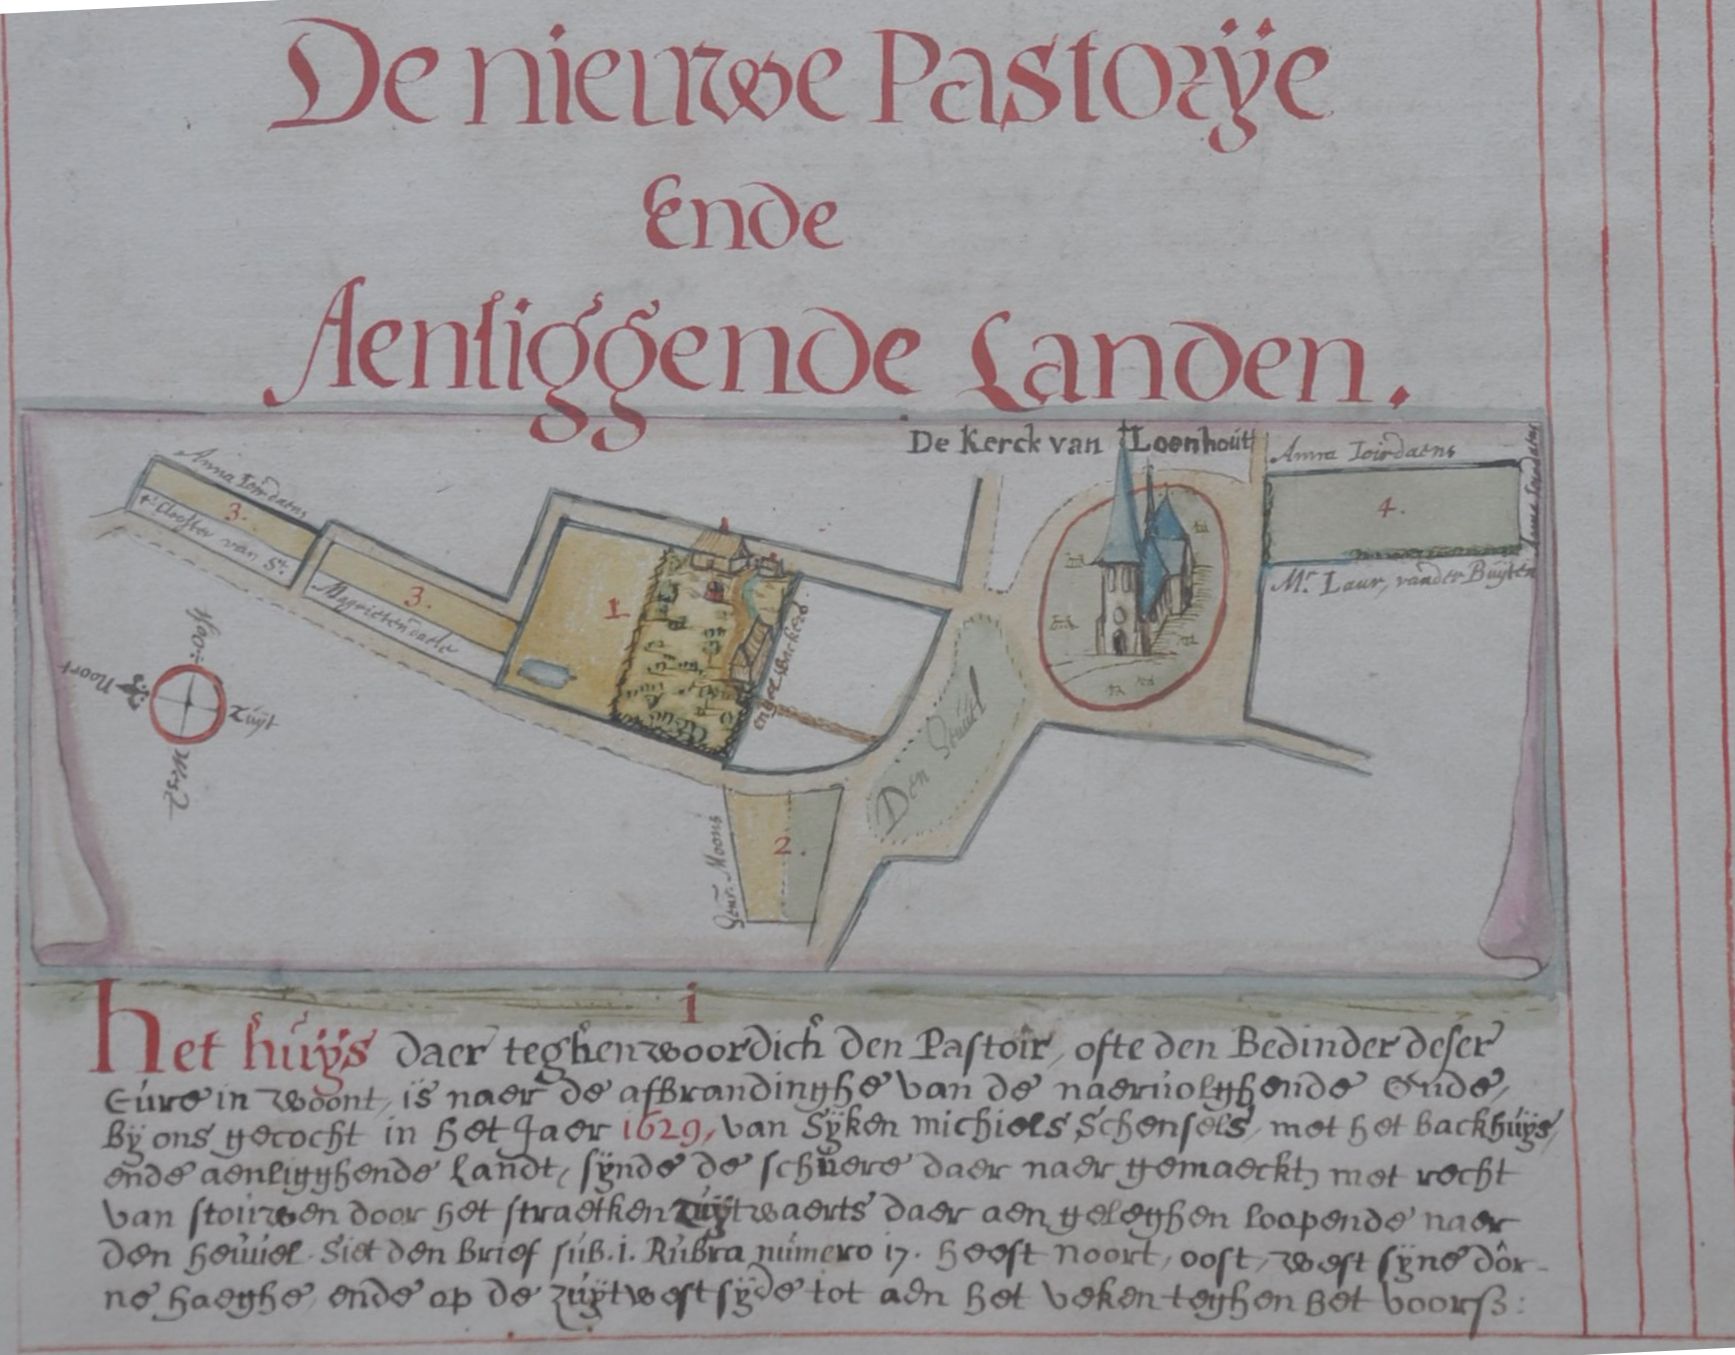 De nieuwe Pastorÿe
Ende
Aenliggende Landen.
De Kerck van Loenhoút
Anna Ioirdaens
Anna Ioirdaens
4.
Mr. Laur, vander Buÿten
Anna Ioirdaens
3.
t' Clooster van St.
3.
Magrieten daele
1.
Engel Backers
Den Heuúel
2.
Moons
Noort
Zuÿt
West
1
Het húÿs daer teghenwoordich den Pastoir, ofte den Bedinder deser
Cúre in woont, is naer de afbrandinghe van de naervolghende Oude,
Bÿ ons gecocht in het Jaer 1629, van Sÿken michiels Schensels, met het backhúÿs,
ende aenligghende landt, sÿnde de schúere daer naer gemaeckt, met recht
van stouwen door het straetken zúÿtwaerts daer aen geleghen loopende naer
den heúuel. Siet den brief súb. i. Rúbra número 17. heeft noort, oost, west sÿne dor-
ne haeghe, ende op de zúÿtwestsÿde tot aen het veken teghen het voorss: